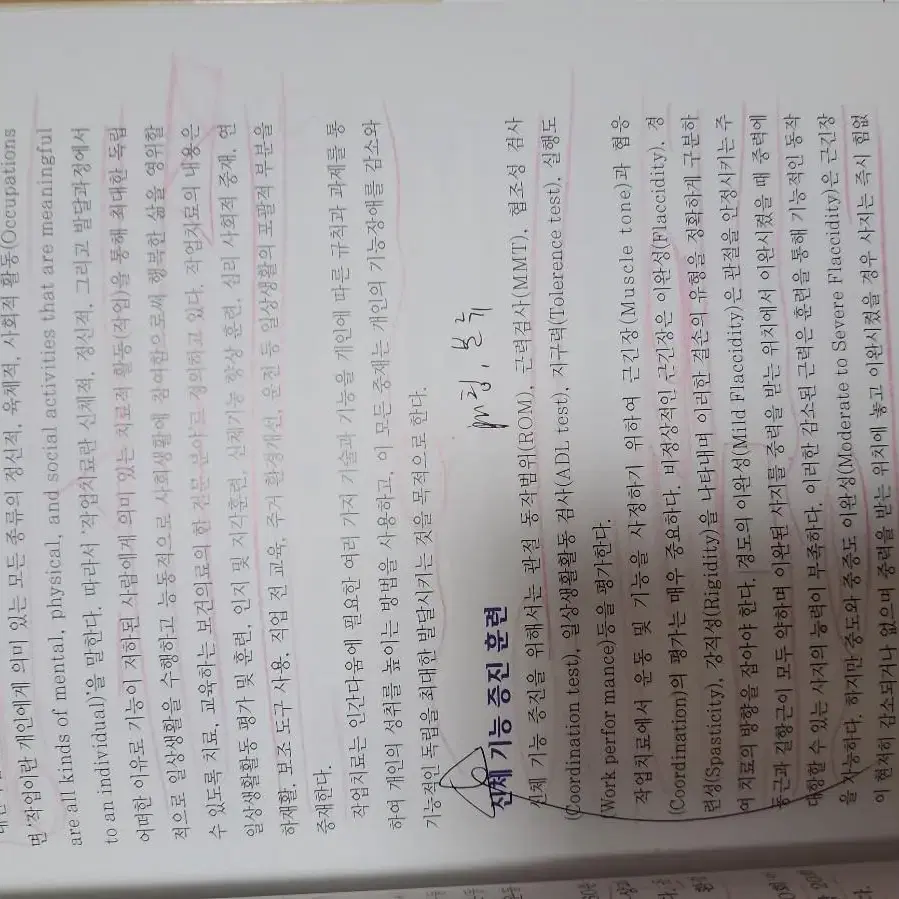 면 '작업이란 개인에게 의미 있는 모든 종류의 정신적, 육체적, 사회적 활동(Occupations
are all kinds of mental, physical, and social activities that are meaningful
to an individual)'을 말한다. 따라서 '작업치료란 신체적, 정신적, 그리고 발달과정에서
어떠한 이유로 기능이 저하된 사람에게 의미 있는 치료적 활동(작업)을 통해 최대한 독립
적으로 일상생활을 수행하고 능동적으로 사회생활에 참여함으로써 행복한 삶을 영위할
수 있도록 치료, 교육하는 보건의료의 한 전문 분야'로 정의하고 있다. 작업치료의 내용은
일상생활활동 평가 및 훈련, 인지 및 지각훈련, 신체기능 향상 훈련, 심리 사회적 중재, 연
하재활, 보조 도구 사용, 직업 전 교육, 주거 환경개선, 운전 등 일상생활의 포괄적 부분을
중재한다.
작업치료는 인간다움에 필요한 여러 가지 기술과 기능을 개인에 따른 규칙과 과제를 통
하여 개인의 성취를 높이는 방법을 사용하고, 이 모든 중재는 개인의 기능장애를 감소와
기능적인 독립을 최대한 발달시키는 것을 목적으로 한다.
신체 기능 증진 훈련
신체 기능 증진을 위해서는 관절 동작범위(ROM), 근력검사(MMT), 협조성 검사
(Coordination test), 일상생활활동 검사(ADL test), 지구력(Tolerence test), 실행도
(Work perfor mance)등을 평가한다.
작업치료에서 운동 및 기능을 사정하기 위하여 근긴장(Muscle tone)과 협응
(Coordination)의 평가는 매우 중요하다. 비정상적인 근긴장은 이완성(Flaccidity), 경
련성(Spasticity), 강직성(Rigidity)을 나타내며 이러한 결손의 유형을 정확하게 구분하
여 치료의 방향을 잡아야 한다. 경도의 이완성(Mild Flaccidity)은 관절을 안정시키는 주
동근과 길항근이 모두 약하며 이완된 사지를 중력을 받는 위치에서 이완시켰을 때 중력에
대항할 수 있는 사지의 능력이 부족하다. 이러한 감소된 근력은 훈련을 통해 기능적인 동작
을 가능하다. 하지만 중도와 중증도 이완성(Moderate to Severe Flaccidity)은 근긴장
이 현저히 감소되거나 없으며 중력을 받는 위치에 놓고 이완시켰을 경우 사지는 즉시 힘없